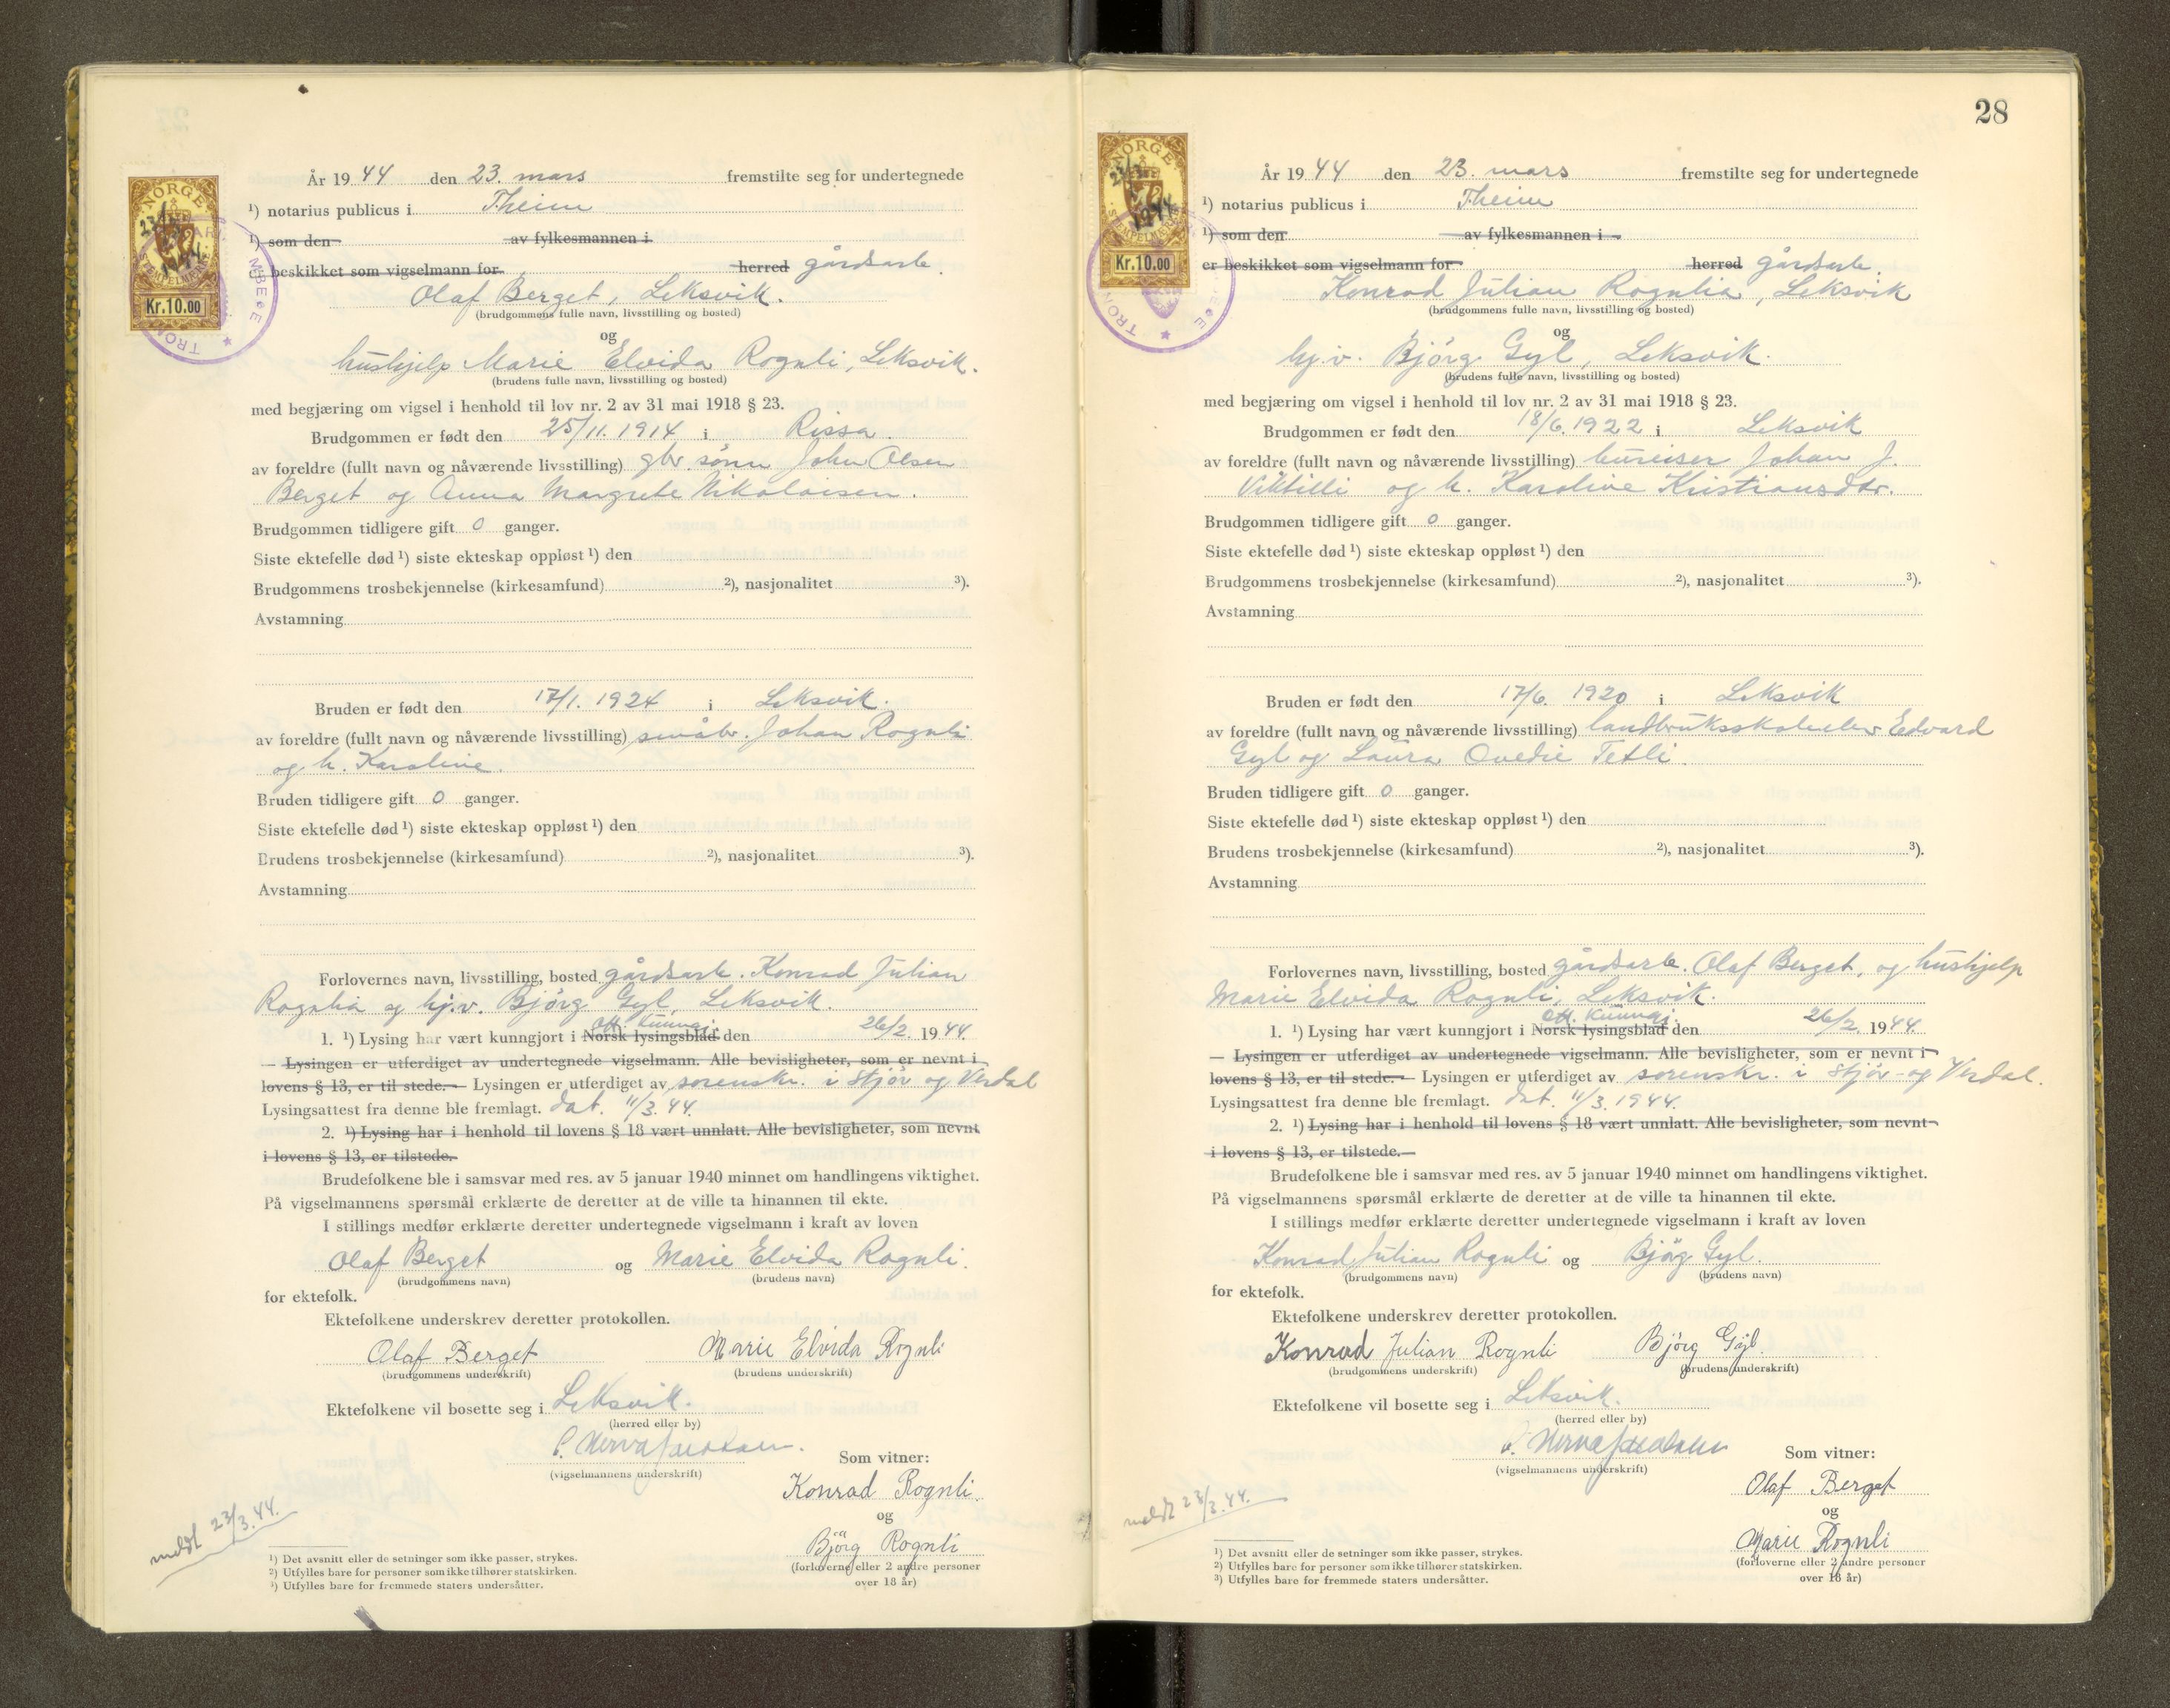 NORGE
23/3 1944
STEMPELMERKE
Kr.10.00
År 1944 den 23. mars fremstilte seg for undertegnede
¹) notarius publicus i Theim
¹) som den av fylkesmannen i
beskikket som vigselmann for herred gårdsarb.
Olaf Berget, Leksvik.
(brudgommens fulle navn, livsstilling og bosted)
og
hushjelp Marie Elvida Rognli, Leksvik.
(brudens fulle navn, livsstilling og bosted)
med begjæring om vigsel i henhold til lov nr. 2 av 31 mai 1918 § 23.
Brudgommen er født den 25/11. 1914 i Rissa.
av foreldre (fullt navn og nåværende livsstilling) gbr. sønn John Olsen
Berget og Anna Margrete Nikolaisen.
Brudgommen tidligere gift 0 ganger.
Siste ektefelle død ¹) siste ekteskap oppløst ¹) den
Brudgommens trosbekjennelse (kirkesamfund) ²), nasjonalitet ³).
Avstamning
Bruden er født den 17/1. 1924 i Leksvik.
av foreldre (fullt navn og nåværende livsstilling) småbr. Johan Rognli
og h. Karoline.
Bruden tidligere gift 0 ganger.
Siste ektefelle død ¹) siste ekteskap oppløst ¹) den
Brudens trosbekjennelse (kirkesamfund) ²), nasjonalitet ³).
Avstamning
Forlovernes navn, livsstilling, bosted gårdsarb. Konrad Julian
Rognlia og hj.v. Bjørg Gyl, Leksvik.
off. kunngj.
1. ¹) Lysing har vært kunngjort i Norsk lysingsblad den 26/2. 1944.
— Lysingen er utferdiget av undertegnede vigselmann. Alle bevisligheter, som er nevnt i
lovens § 13, er til stede. — Lysingen er utferdiget av sorenskr. i Stjør og Verdal
Lysingsattest fra denne ble fremlagt. dat. 11/3. 44.
2. ¹) Lysing har i henhold til lovens § 18 vært unnlatt. Alle bevisligheter, som nevnt
i lovens § 13, er tilstede.
Brudefolkene ble i samsvar med res. av 5 januar 1940 minnet om handlingens viktighet.
På vigselmannens spørsmål erklærte de deretter at de ville ta hinannen til ekte.
I stillings medfør erklærte deretter undertegnede vigselmann i kraft av loven
Olaf Berget og Marie Elvida Rognli.
(brudgommens navn) (brudens navn)
for ektefolk.
Ektefolkene underskrev deretter protokollen.
Olaf Berget Marie Elvida Rognli
(brudgommens underskrift) (brudens underskrift)
Ektefolkene vil bosette seg i Leksvik.
(herred eller by)
(vigselmannens underskrift)
Som vitner:
Konrad Rognli.
og
Bjørg Rognli
(forloverne eller 2 andre personer
over 18 år)
meldt 23/3. 44.
¹) Det avsnitt eller de setninger som ikke passer, strykes.
²) Utfylles bare for personer som ikke tilhører statskirken.
³) Utfylles bare for fremmede staters undersåtter.
28
NORGE
23/3 1944
STEMPELMERKE
Kr.10.00
År 1944 den 23. mars fremstilte seg for undertegnede
¹) notarius publicus i Theim
¹) som den av fylkesmannen i
er beskikket som vigselmann for herred gårdsarb.
Konrad Julian Rognlia, Leksvik
(brudgommens fulle navn, livsstilling og bosted)
og
hj.v. Bjørg Gyl, Leksvik.
(brudens fulle navn, livsstilling og bosted)
med begjæring om vigsel i henhold til lov nr. 2 av 31 mai 1918 § 23.
Brudgommen er født den 18/6. 1922 i Leksvik
av foreldre (fullt navn og nåværende livsstilling) bureiser Johan J.
og h. Karoline Kristiansdtr.
Brudgommen tidligere gift 0 ganger.
Siste ektefelle død ¹) siste ekteskap oppløst ¹) den
Brudgommens trosbekjennelse (kirkesamfund) ²), nasjonalitet ³).
Avstamning
Bruden er født den 17/6. 1920 i Leksvik
av foreldre (fullt navn og nåværende livsstilling) landbruksskoleelev Edvard
Gyl og Laura Ovedie Tetli.
Bruden tidligere gift 0 ganger.
Siste ektefelle død ¹) siste ekteskap oppløst ¹) den
Brudens trosbekjennelse (kirkesamfund) ²), nasjonalitet ³).
Avstamning
Forlovernes navn, livsstilling, bosted gårdsarb. Olaf Berget, og hushjelp
Marie Elvida Rognli, Leksvik.
off. kunngj.
1. ¹) Lysing har vært kunngjort i Norsk lysingsblad den 26/2. 1944
— Lysingen er utferdiget av undertegnede vigselmann. Alle bevisligheter, som er nevnt i
lovens § 13, er til stede. — Lysingen er utferdiget av sorenskr. i Stjør- og Verdal.
Lysingsattest fra denne ble fremlagt. dat. 11/3. 1944.
2. ¹) Lysing har i henhold til lovens § 18 vært unnlatt. Alle bevisligheter, som nevnt
i lovens § 13, er tilstede.
Brudefolkene ble i samsvar med res. av 5 januar 1940 minnet om handlingens viktighet.
På vigselmannens spørsmål erklærte de deretter at de ville ta hinannen til ekte.
I stillings medfør erklærte deretter undertegnede vigselmann i kraft av loven
Konrad Julian Rognli og Bjørg Gyl.
(brudgommens navn) (brudens navn)
for ektefolk.
Ektefolkene underskrev deretter protokollen.
Konrad Julian Rognli Bjørg Gyl.
(brudgommens underskrift) (brudens underskrift)
Ektefolkene vil bosette seg i Leksvik.
(herred eller by)
(vigselmannens underskrift)
Som vitner:
Olaf Berget
og
Marie Rognli
(forloverne eller 2 andre personer
over 18 år)
meldt 23/3. 44.
¹) Det avsnitt eller de setninger som ikke passer, strykes.
²) Utfylles bare for personer som ikke tilhører statskirken.
³) Utfylles bare for fremmede staters undersåtter.